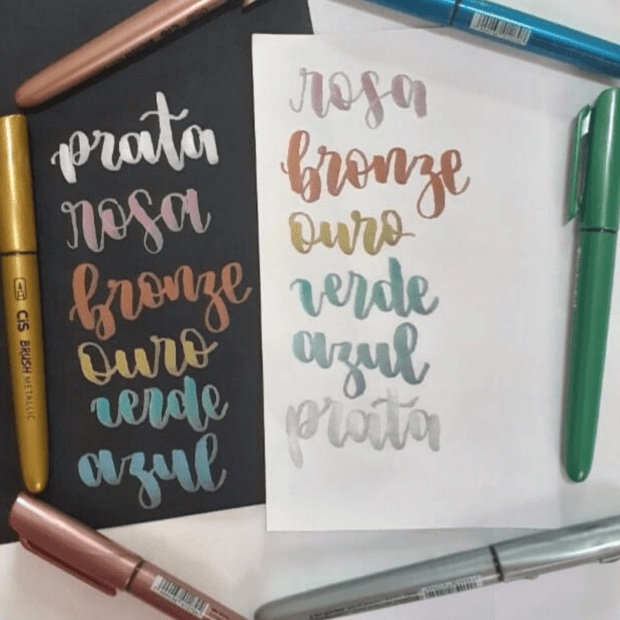 prata
rosa
bronze
ouro
verde
azul
rosa
bronze
ouro
verde
azul
prata
CiS BRUSH METALLIC